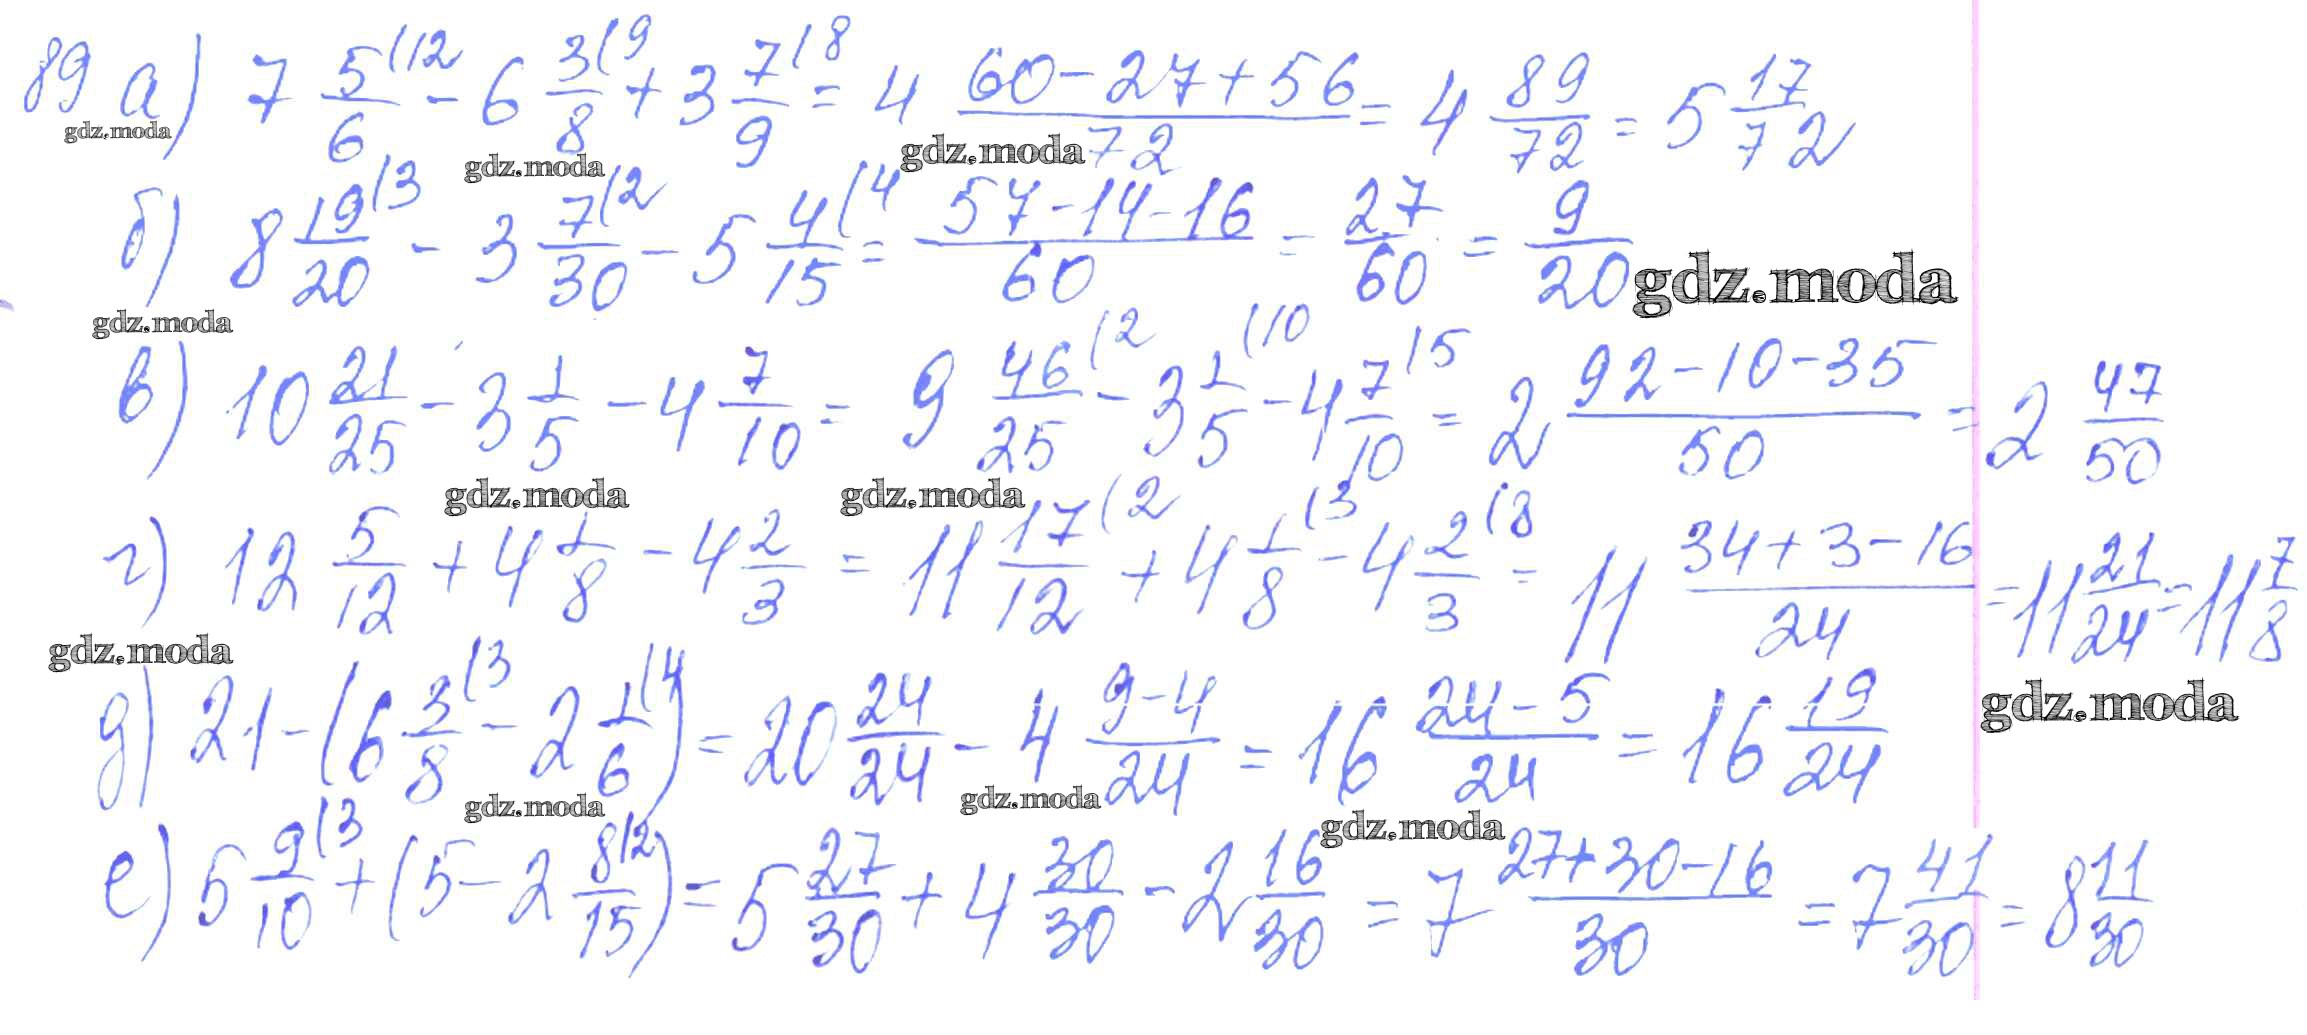 89 а) 7 5/6 (12 - 6 3/8 (9 + 3 7/9 (8 = 4 (60-27+56)/72 = 4 89/72 = 5 17/72
gdz.moda gdz.moda gdz.moda
б) 8 19/20 (3 - 3 7/30 (2 - 5 4/15 (4 = (57-14-16)/60 = 27/60 = 9/20
gdz.moda gdz.moda
в) 10 21/25 - 3 1/5 - 4 7/10 = 9 46/25 (2 - 3 1/5 (10 - 4 7/10 (5 = 2 (92-10-35)/50 = 2 47/50
gdz.moda gdz.moda
г) 12 5/12 + 4 1/8 - 4 2/3 = 11 17/12 (2 + 4 1/8 (3 - 4 2/3 (8 = 11 (34+3-16)/24 = 11 21/24 = 11 7/8
gdz.moda
д) 21 - (6 3/8 (3 - 2 1/6 (4) = 20 24/24 - 4 (9-4)/24 = 16 (24-5)/24 = 16 19/24
gdz.moda
gdz.moda gdz.moda gdz.moda
е) 5 9/10 (3 + (5 - 2 8/15 (2) = 5 27/30 + 4 30/30 - 2 16/30 = 7 (27+30-16)/30 = 7 41/30 = 8 11/30